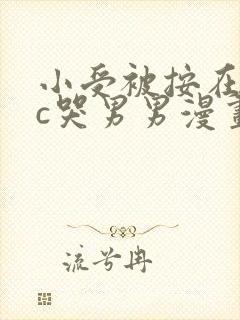 小受被按在
c哭男男漫畫
流兮冉